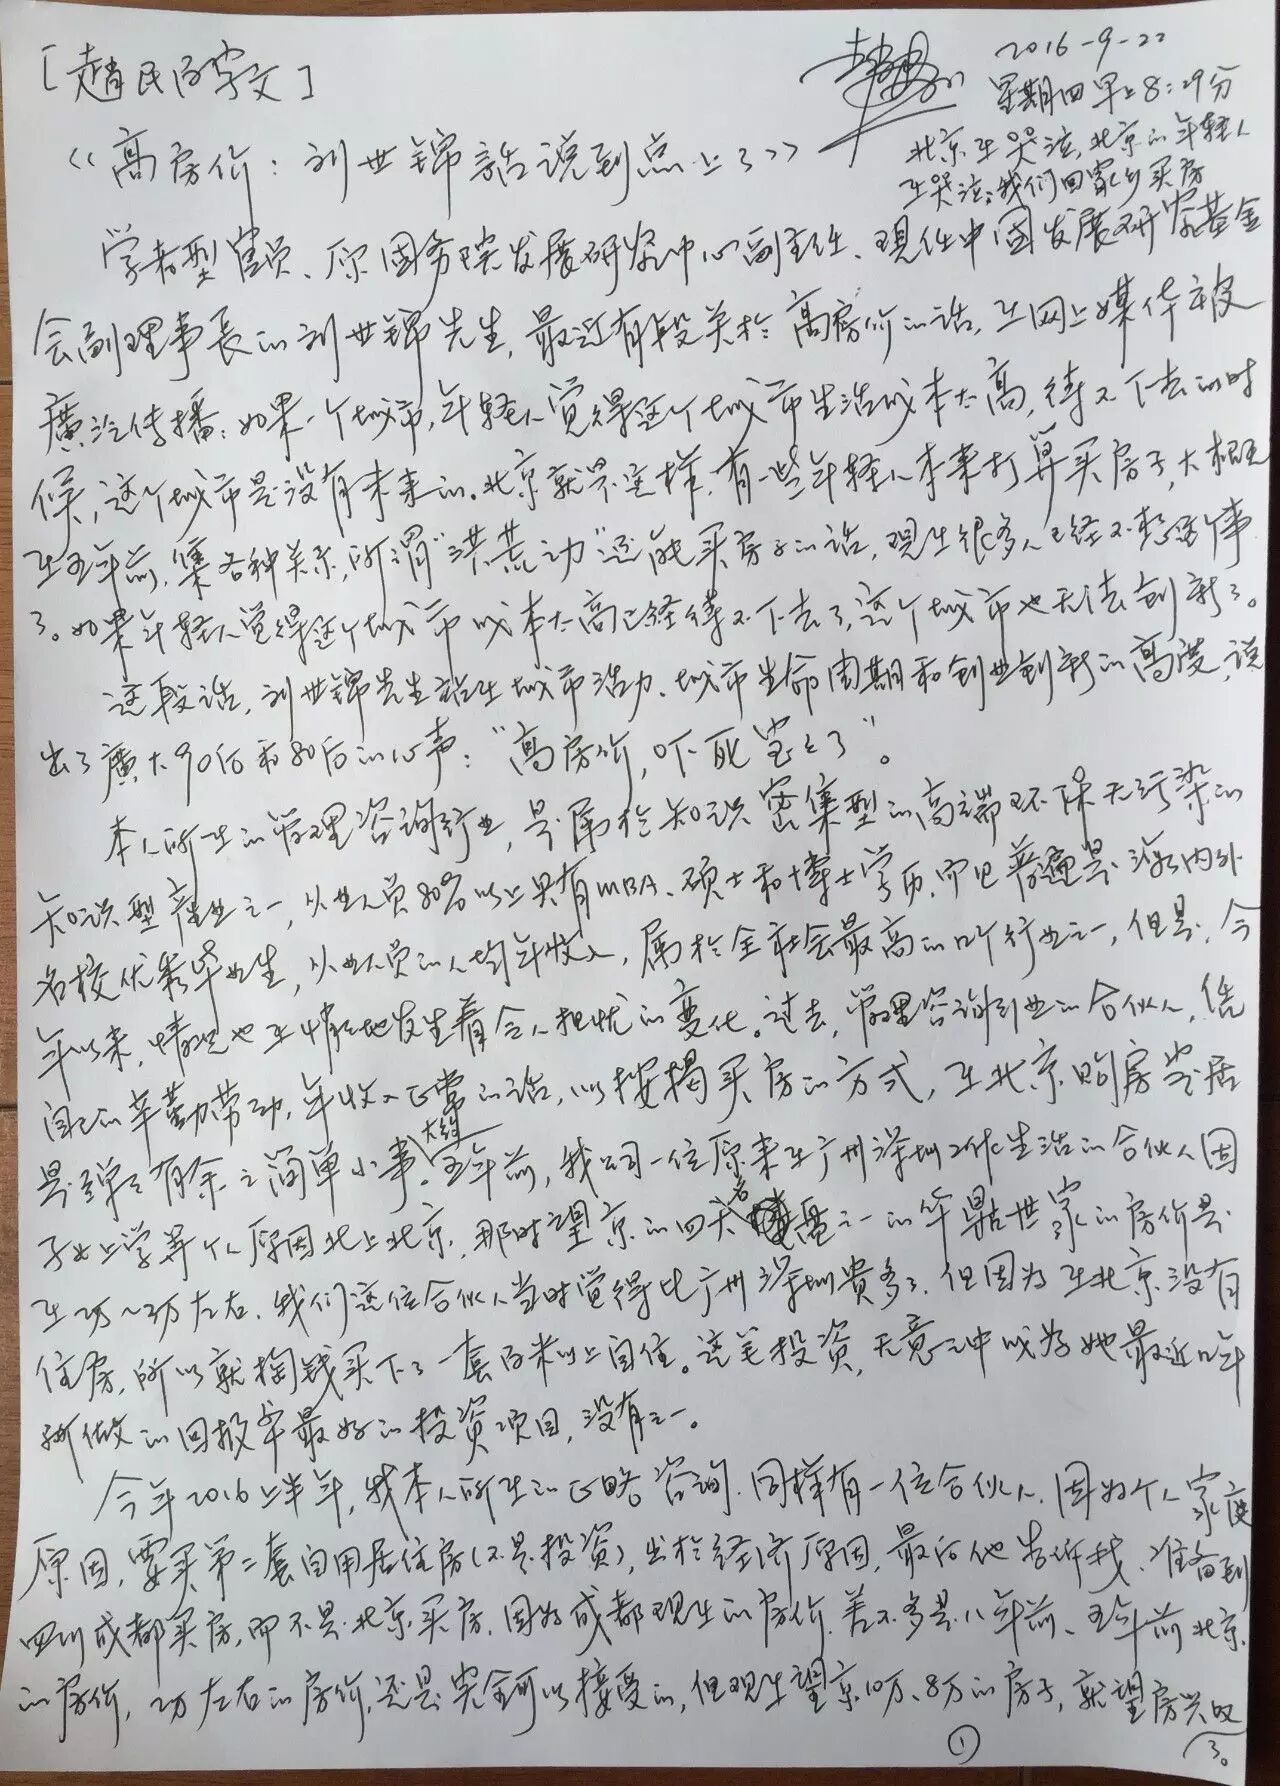 [趙民的字文]
2016-9-22
星期四早上8:29分
北京在哭泣,北京的年轻人
在哭泣:我们回家乡买房
《高房价:刘世锦話说到点上了》
学者型官员、原国务院发展研究中心副主任、现任中國发展研究基金
会副理事長的刘世锦先生,最近有段关於高房价的话,在网上媒体被
廣泛传播:如果一个城市,年轻人觉得这个城市生活成本太高,待不下去的时
候,这个城市是没有未来的。北京就是这样,有一些年轻人本来打算买房子,大概
在五年前,集各种关系,所谓“洪荒之力”还能买房子的话,现在很多人已经不想这个事
了。如果年轻人觉得这个城市成本太高已经待不下去了,这个城市也无法创新了。
这段话,刘世锦先生站在城市活力、城市生命周期和创业创新的高度,说
出了廣大90后和80后的心声:“高房价,吓死宝宝了”。
本人所在的管理咨询行业,是属於知识密集型的高端环保无污染的
知识型產业之一,从业人员80%以上具有MBA、硕士和博士学历,而且普遍是海内外
名校优秀毕业生,从业人员的人均年收入,属於全社会最高的几个行业之一,但是,今
年以来,情况也在悄悄地发生着令人担忧的变化。过去,管理咨询行业的合伙人,凭
自己的辛勤劳动,年收入正常的话,以按揭买房的方式,在北京购房安居
是绰绰有余之简单小事。大约五年前,我公司一位原来在广州深圳工作生活的合伙人因
子女上学等个人原因北上北京,那时望京的四大名盘之一的华鼎世家的房价是
在2万~3万左右,我们这位合伙人当时觉得比广州深圳贵多了,但因为在北京没有
住房,所以就掏钱买下了一套百米以上自住。这笔投资,无意之中成为她最近几年
所做的回报率最好的投资项目,没有之一。
今年2016上半年,我本人所在的正略咨询,同样有一位合伙人,因为个人家庭
原因,要买第二套自用居住房(不是投资),出於经济原因,最后他告诉我,准备到
四川成都买房,而不是北京买房,因为成都现在的房价,差不多是八年前、五年前北京
的房价,2万左右的房价,还是完全可以接受的,但现在望京10万、8万的房子,就望房兴叹
了。
①